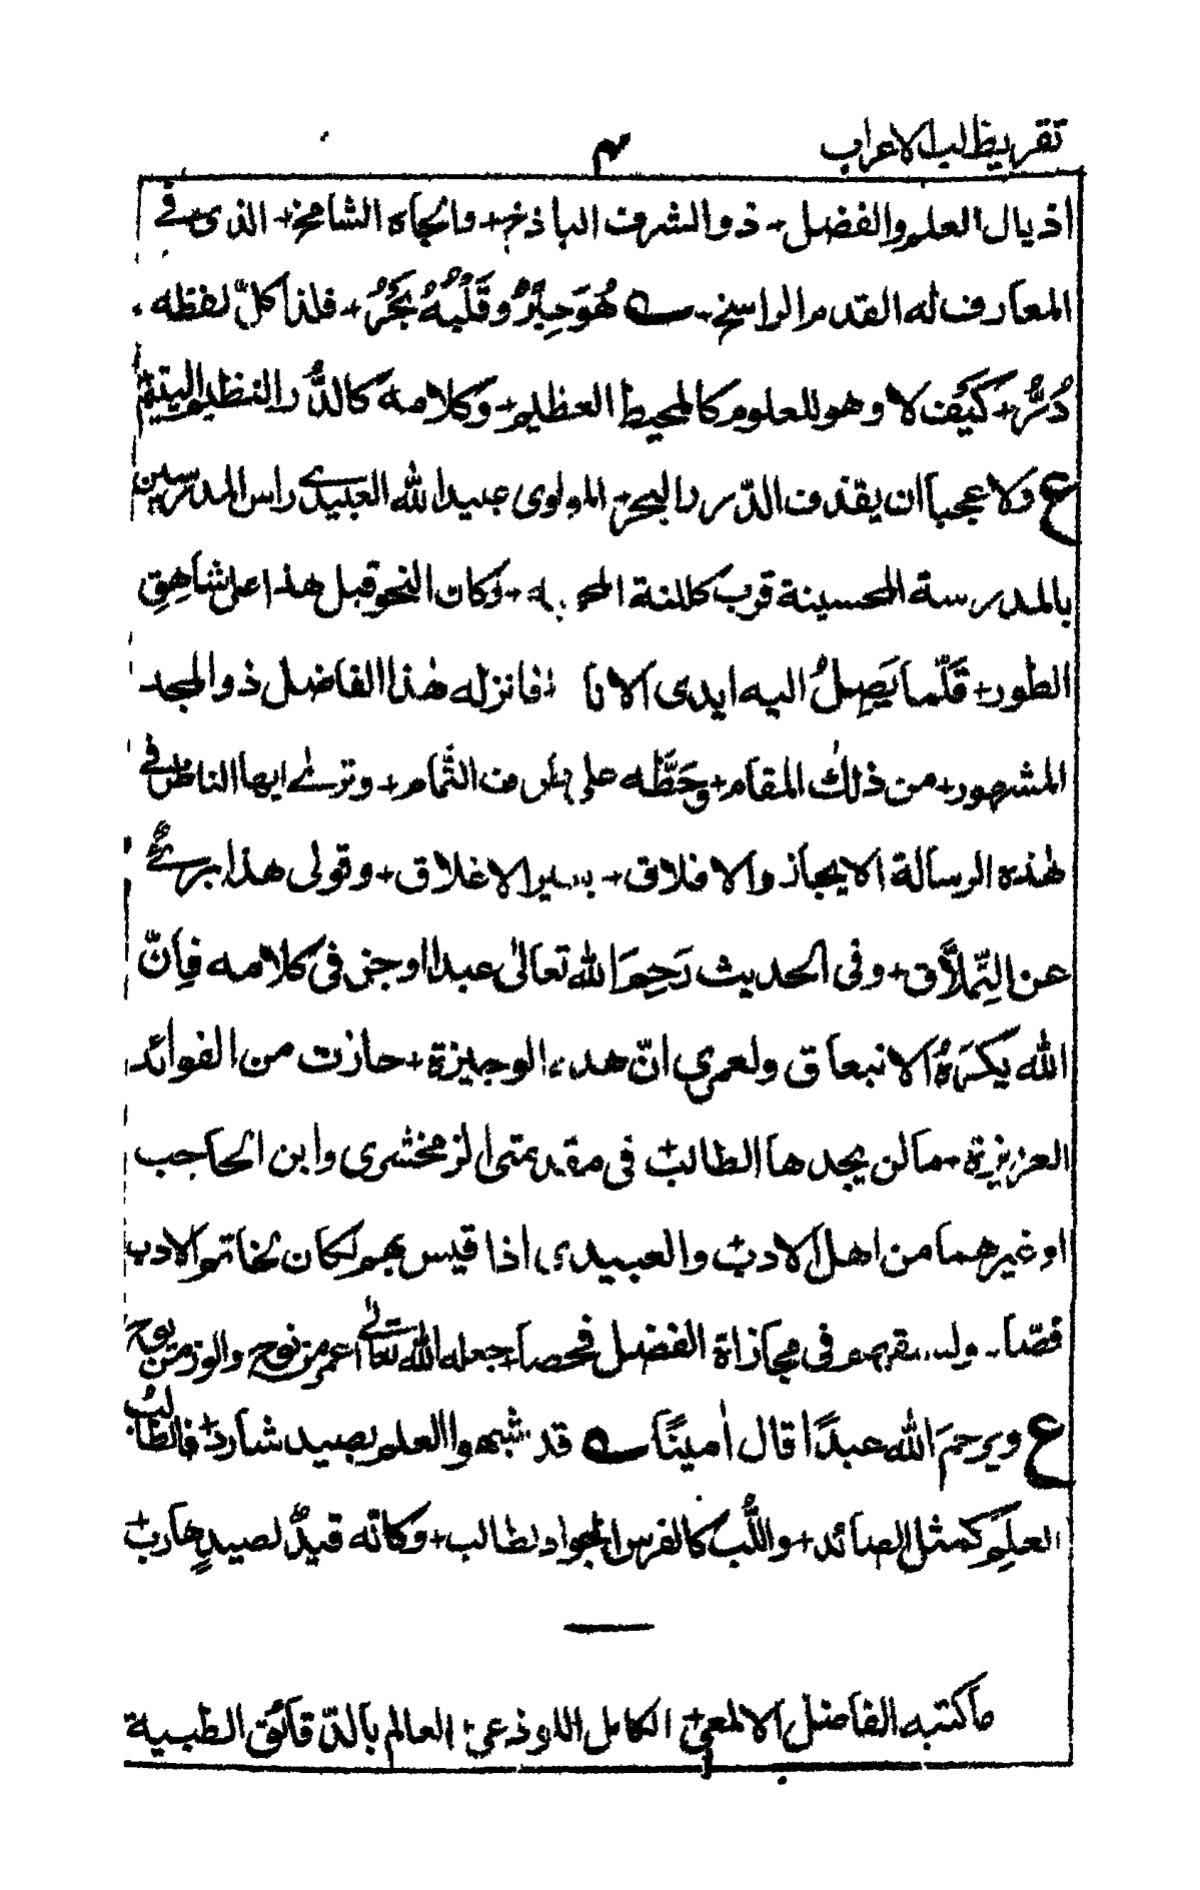 تقريظ لب الاعراب
٣
اذيال العلم والفضل + ذو الشرف الباذخ + والجاه الشامخ + الذى فے
المعارف له القدم الراسخ ـ ؎ هُوَ حِبْرٌ وَقَلْبُهُ بَحْرٌ + فلذا كلّ لفظه
دُرٌّ + كَيْفَ لا وهو للعلوم كالمحيط العظيم + وكلامه كالدُّر النظيم اليتيم
ع ولا عجبا ان يقذف الدّرر البحر + المولوى عبيد الله العبيدے راس المدرسين
بالمدرسة المحسينة قرب كلكتة + وكان النحو قبل هذا على شاهِقِ
الطور + قَلّما يَصِلُ اليه ايدى الانا فانزله هٰذا الفاضل ذو المجد
المشهور + من ذلك المقام + وحَطَّه على طرف الثُّمام + وترےٰ ايها الناظر فے
هٰذه الرسالة الايجاز والافلاق + بسير الاغلاق + وقولى هذا برئےٌ
عن التِّملاّق + وفى الحديث رَحِمَ الله تعالىٰ عبدا اوجز فى كلامه فاِنّ
الله يكرَهُ الانبعاق ولعمرى انّ هذه الوجيزة + حازت من الفوائد
العزيزة + ما لن يجدها الطالب فى مقدمتى الزمخشرى وابن الحاجب
او غيرهما من اهل الادب + والعبيدى اذا قيس بهم لكان لخاتم الادب
فصّا ـ ولسبقهم فى مجازاة الفضل فحصا + جعله الله تعالےٰ اعمر من نوح والوز من يوح
ع ويرحمَ الله عبدًا قال اٰمينًا ؎ قد شبهوا العلم بصيد شارد + فالطالب
العلِمِ كمثل الصائد + واللُّب كالفرس الجواد لطالب + وكانّه قيدٌ لصيدٍ هارب +
ماكتبه الفاضل الالمعى + الكامل اللوذعى + العالم بالدّقائق الطبية